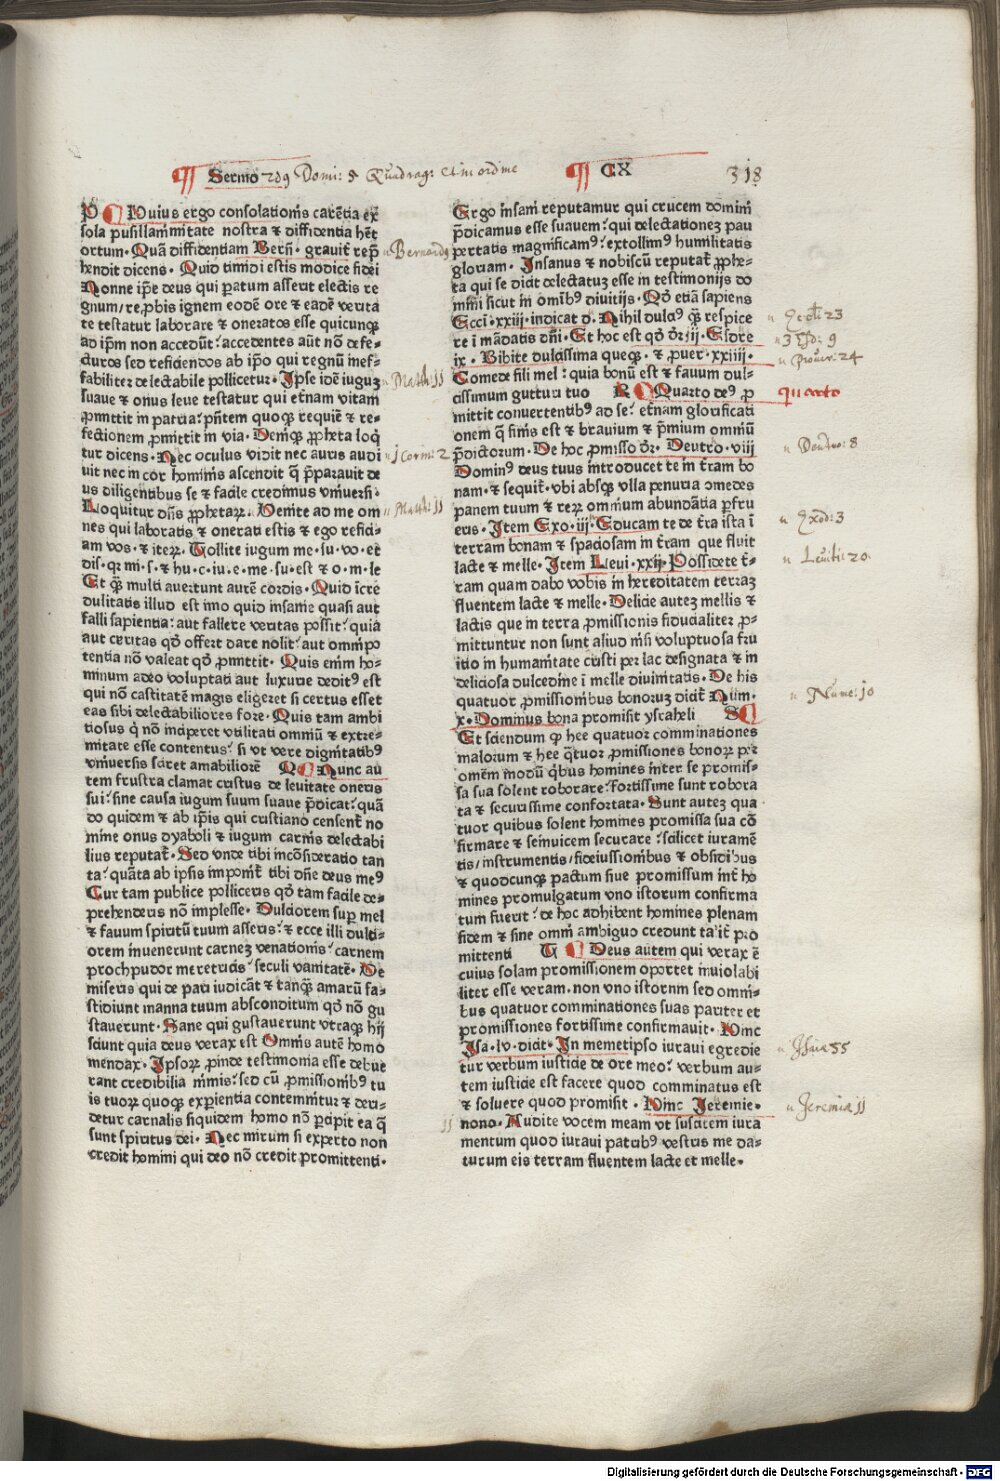 ¶ Sermo 289 Domi: 5 Quadrag: et in ordine ¶ CX 318
P ¶ Huius ergo consolationis carẽtia ex
sola pusillanimitate nostra ⁊ diffidentia hẽt
ortum. Quã diffidentiam Berñ. grauiť rep̃
hendit dicens. Quid timidi estis modice fidei
Nonne ip̃e deus qui peccatum asserit electis re
gnum/ re ꝓbis ignem eodẽ ore ⁊ eadẽ verita
te testatur laborare ⁊ oneratos esse quicunqꝫ
ad ip̃m non accedũt: accedentes aũt nõ defe⸗
cturos sed reficiendos ab ip̃o qui regnũ inef⸗
fabiliter delectabile pollicetur. Ipse idẽ iuguꝫ
suaue ⁊ onus leue testatur qui eternam vitam
ꝓmittit in patria: p̃ntem quoqꝫ requiẽ ⁊ re⸗
fectionem ꝓmittit in via. Deniqꝫ ꝓpheta loq̃
tur dicens. Nec oculus vidit nec auris audi
uit nec in cor hominis ascendit q̃ p̃parauit de
us diligentibus se ⁊ facile credimus vniuersi.
Loquitur dñs ꝓphetaꝝ. Uenite ad me om
nes qui laboratis ⁊ onerati estis ⁊ ego refici⸗
am vos. ⁊ iteꝝ. Tollite iugum me. su. vo. et
dis. qꝛ mi. s. ⁊ hu. c. iu. e. me. su. est ⁊ o. m. le
Et q̃ꝫ multi auertunt aurẽ cordis. Quid icre
dulitatis illud est imo quid insanie quasi aut
falli sapientia: aut fallere veritas possit: quia
aut ceritas qđ offert dare nolit: aut omnipo
tentia nõ valeat qđ ꝓmittit. Quis enim ho⸗
minum adeo voluptati aut luxurie dedit⁹ est
qui nõ castitatẽ magis eligeret si certus esset
eas sibi delectabiliores fore. Quis tam ambi
tiosus q̇ nõ inciperet vtilitati omniũ ⁊ extre⸗
mitate esse contentus: si vt vere dignitatib⁹
vniuersis sciret amabiliorẽ Q ¶ Nunc au
tem frustra clamat cristus de leuitate oneris
sui: sine causa iugum suum suaue p̃dicat: quã
do quidem ⁊ ab ip̃is qui cristiano censent̃ no
mine onus dyaboli ⁊ iugum carnis delectabi
lius reputat̃. Sed vnde tibi incõsideratio tan
ta: quãta ab ipsis imponit̃ tibi dñe deus me⁹
Cur tam publice polliceris qđ tam facile de⸗
prehenderis nõ implesse. Dulciorem suꝑ mel
⁊ fauum spiritũ tuum asseris: ⁊ ecce illi dulci⸗
orem inuenerunt carneꝫ venationis: carnem
prochpudor meretricis: seculi vanitatẽ. De
miseris qui de pari iudicãt ⁊ tanq̃ꝫ amarũ fa⸗
stidiunt manna tuum absconditum qđ nõ gu
stauerunt. Sane qui gustauerunt vtraqꝫ hij
sciunt quia deus verax est Omnis autẽ homo
mendax. Ipsoꝝ ꝓinde testimonia esse debue
rant credibilia nimis: sed cũ ꝓmissionib⁹ tu
is tuoꝝ quoqꝫ experientia contemnit̃ur ⁊ deri⸗
detur carnalis siquidem homo nõ ꝑcipit ea q̃
sunt spiritus dei. Nec mirum si experto non
credit homini qui deo nõ credit promittenti.
Bernardus
Math: 11
1 Corin: 2
Math: 11
Ergo insani reputamur qui crucem domini
p̃dicamus esse suauem: qui delectationeꝫ pau
pertatis magnificam⁹: extollim⁹ humilitatis
gloriam. Insanus ⁊ nobiscũ reputat̃ ꝓphe⸗
ta qui se dicit delectatuꝫ esse in testimonijs do
mini sicut in oĩnib⁹ diuitijs. Qđ etiã sapiens
Ecci. xxiij. indicat d. Nihil dulci⁹ q̃ꝫ respice
re i mãdatis dñi. Et hoc est qđ dr̃ iij. Esdre
ix. Bibite dulcissima queqꝫ. ⁊ ꝓuer. xxiiij.
Comede fili mel: quia bonũ est ⁊ fauum dul⸗
cissimum gutturi tuo R ¶ Quarto de⁹ ꝓ
mittit conuertentib⁹ ad se: eternam glorificati
onem q̃ finis est ⁊ brauium ⁊ p̃mium omniũ
p̃dictorum. De hoc ꝓmisso dr̃. Deutro. viij
Domin⁹ deus tuus introducet te in t̃ram bo
nam. ⁊ sequit̃. vbi absqꝫ vlla penuria ɔmedes
panem tuum ⁊ reꝝ omnium abundãtia ꝑfru
eris. Item Exo. iij. Educam te de t̃ra ista i
terram bonam ⁊ spaciosam in t̃ram que fluit
lacte ⁊ melle. Item Leui. xxij. Possidete t̃⸗
ram quam dabo vobis in hereditatem terraꝫ
fluentem lacte ⁊ melle. Delicie auteꝫ mellis ⁊
lactis que in terra ꝓmissionis fiducialiter ꝓ⸗
mittuntur non sunt aliud nisi voluptuosa fru
itio in humanitate cristi per lac designata ⁊ in
deliciosa dulcedine i melle diuinitatis. De his
quatuor ꝓmissionibus bonoruꝫ dicit Num.
x. Dominus bona promisit ysraheli S ¶
Et sciendum ꝙ hee quatuor comminationes
malorum ⁊ hee q̃tuor ꝓmissiones bonoꝝ per
omẽm modũ q̇bus homines inter se promis⸗
sa sua solent roborare: fortissime sunt robora
ta ⁊ securissime confortata. Sunt auteꝫ qua
tuor quibus solent homines promissa sua cõ
firmare ⁊ seinuicem securare: scilicet iuramẽ
tis/ instrumentis/ fideiussionibus ⁊ obsidibus
⁊ quodcunqꝫ pactum siue promissum int̃ ho
mines promulgatum vno istorum confirma
tum fuerit: de hoc adhibent homines plenam
fidem ⁊ sine omni ambiguo credunt taliť pro
mittenti T ¶ Deus autem qui verax ẽ
cuius solam promissionem oportet inuiolabi
liter esse veram. non vno istorum sed omni⸗
bus quatuor comminationes suas pariter et
promissiones fortissime confirmauit. Hinc
Isa. lv. dicit. In memetipso iuraui egredie
tur verbum iusticie de ore meo: verbum au⸗
tem iusticie est facere quod comminatus est
⁊ soluere quod promisit. Hinc Jeremie.
nono. Audite vocem meam vt suscitem iura
mentum quod iuraui patrib⁹ vestris me da⸗
turum eis terram fluentem lacte et melle.
Eccli 23
3 Esd: 9
Prouer: 24
quarto
Deutro: 8
Exod: 3
Leuiti: 20.
Nume: 10
Isaie 55
Jeremia 11
11
Digitalisierung gefördert durch die Deutsche Forschungsgemeinschaft - DFG